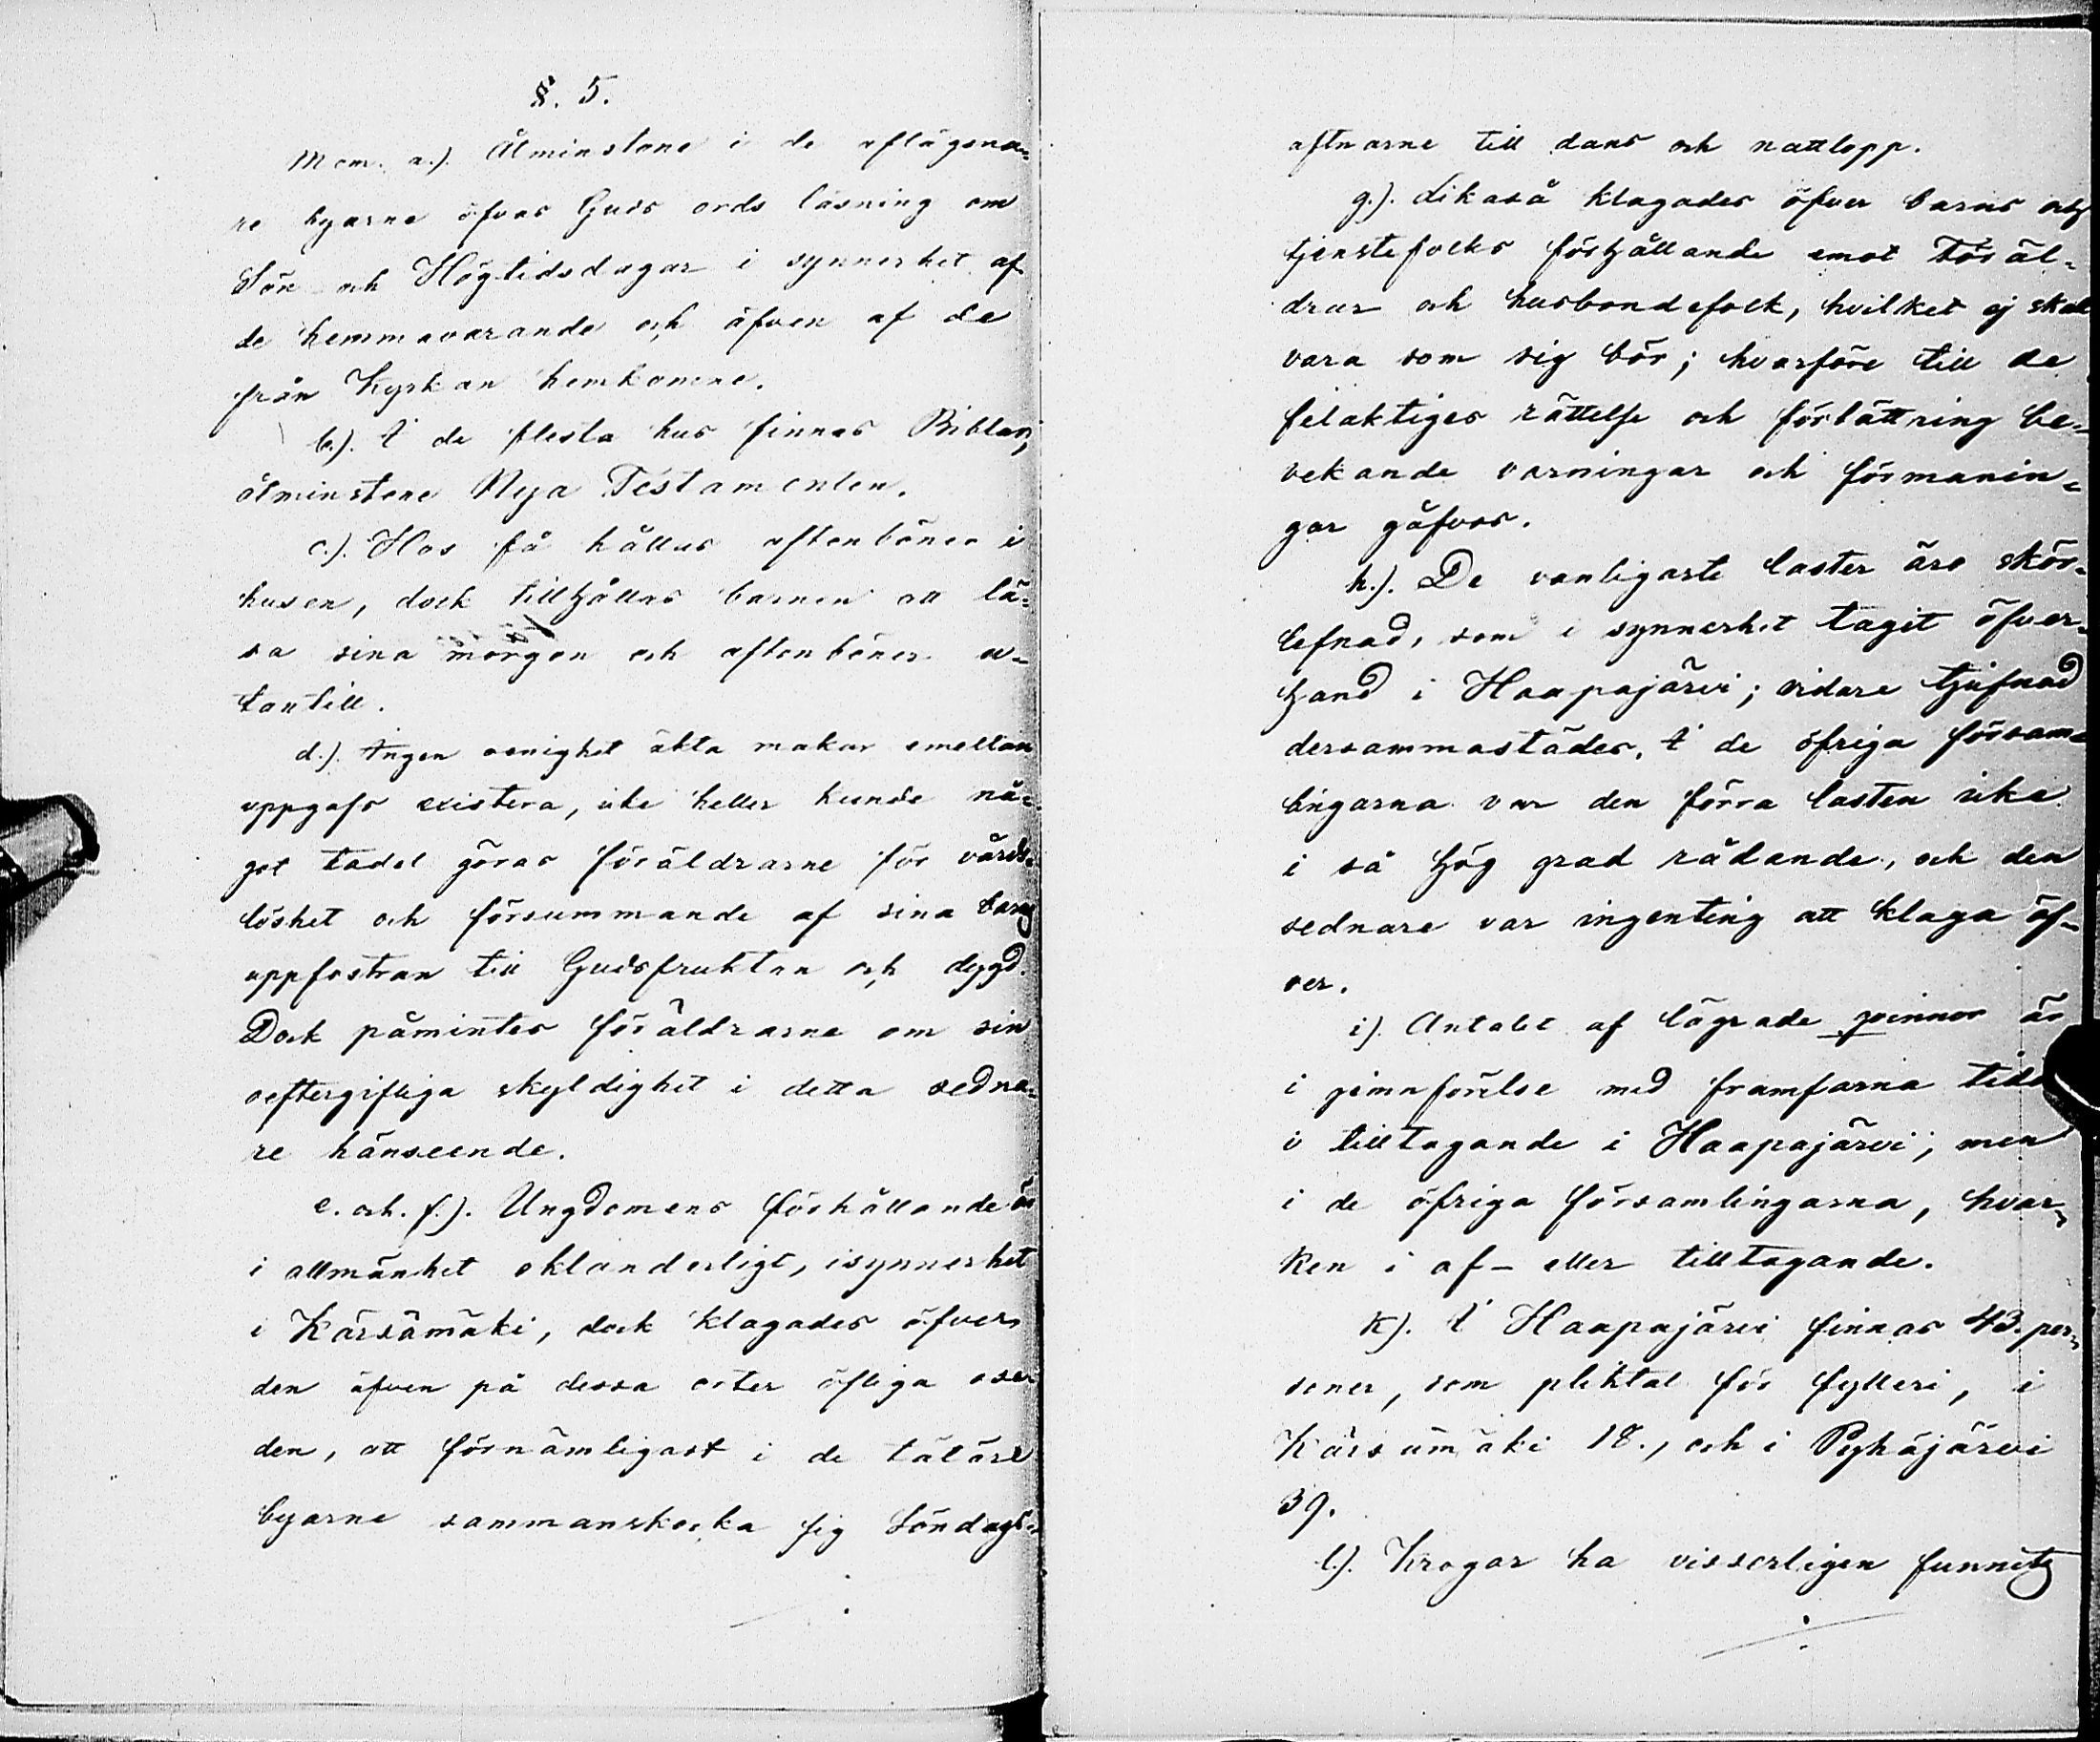 §. 5.
Mom. a.). Åtminstone i de aflägsna-
re byarne öfvas Guds ords läsning om
Sön och Högtidsdagar i synnerhet af
de hemmavarande och äfven af de
från Kyrkan hemkomne.
b.). I de flesta hus finnas Biblar,
åtminstone Nya Testamenten.
c.). Hos få hållas aftonböner i
husen, dock tillhållas barnen att lä-
sa sina morgon och aftonböner u-
tantill.
d.). Ingen oenighet äkta makar emellan
uppgafs existera, icke heller kunde nå-
got tadel göras föräldrarne för vårds-
löshet och försummande af sina barns
uppfostran till Gudsfruktan och dygd.
Dock påmintes föräldrarne om sin
oeftergifliga skyldighet i detta sedna-
re hänseende.
e. och. f.). Ungdomens förhållande är
i allmänhet oklanderligt, isynnerhet
i Kärsämäki, dock klagades öfver
den äfven på dessa orter öfliga ose-
den, att förnämligast i de tätare
byarne sammanskocka sig Söndags-
aftnarne till dans och nattlopp.
g.). Likaså klagades öfver barns och
tjenstefolks förhållande emot Föräl-
drar och husbondefolk, hvilket ej skall
vara som sig bör; hvarföre till de
felaktiges rättelse och förbättring be-
vekande varningar och förmanin-
gar gåfvos.
h.). De vanligaste laster äro skör-
lefnad, som i synnerhet tagit öfver-
hand i Haapajärvi; vidare tjufnad
dersammastädes. I de öfriga försam-
lingarna var den förra lasten icke
i så hög grad rådande, och den
sednare var ingenting att klaga öf-
ver.
i). Antalet af lägrade qvinnor är
i jemnförelse med framfarna tid
i tilltagande i Haapajärvi; men
i de öfriga församlingarna, hvar-
ken i af- eller tilltagande.
k). I Haapajärvi finnas 43. per-
soner, som pliktat för fylleri, i
Kärsämäki 18., och i Pyhäjärvi
39.
l.). Krogar ha visserligen funnits